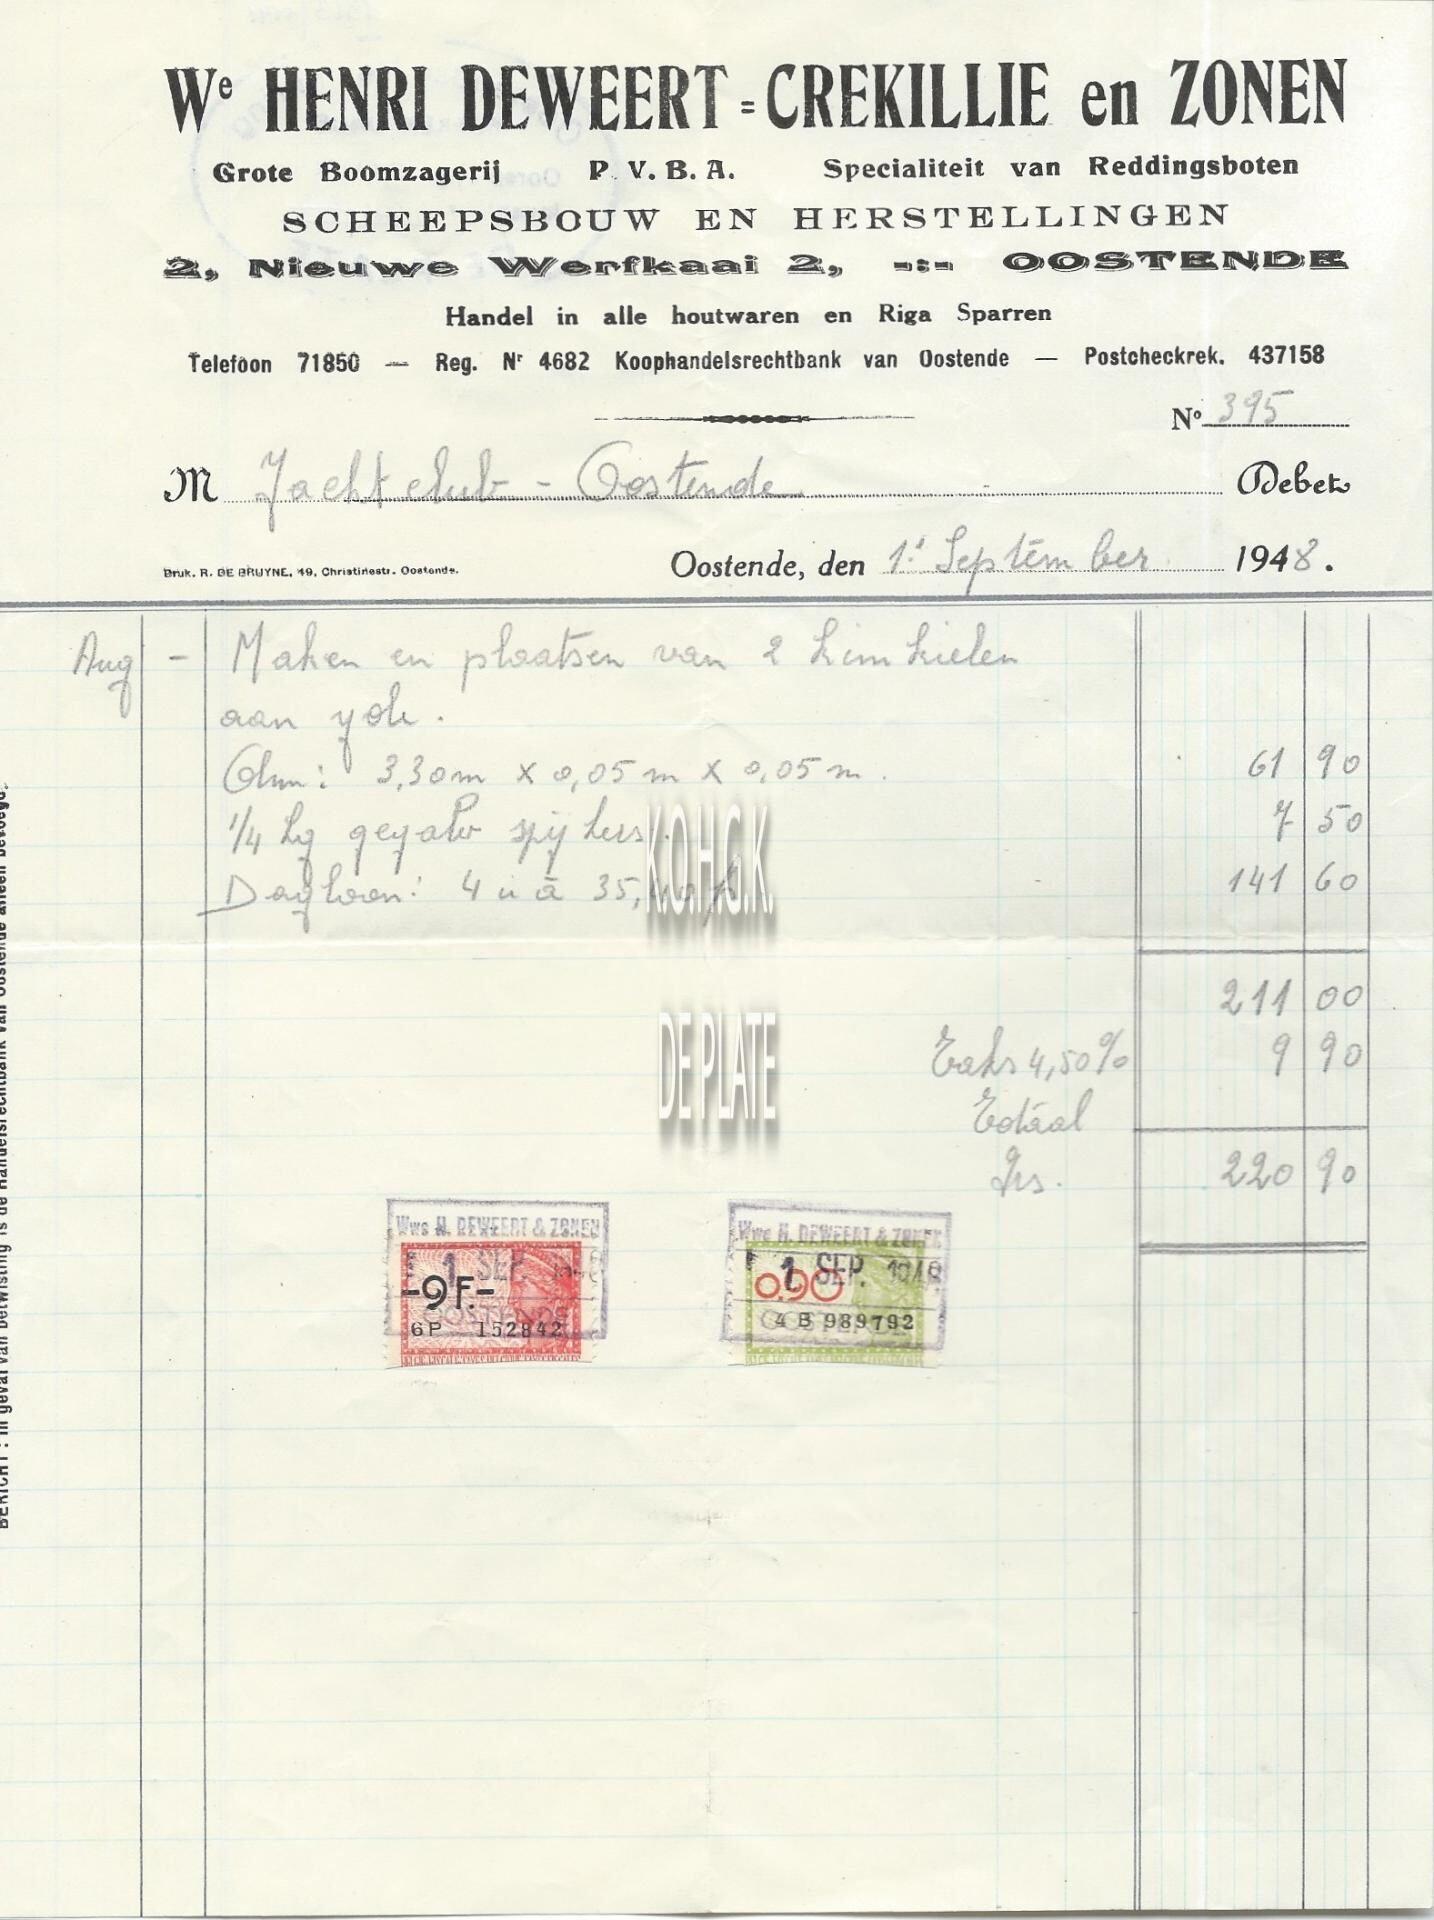 We HENRI DEWEERT = CREKILLIE en ZONEN
Grote Boomzagerij P. V. B. A. Specialiteit van Reddingsboten
SCHEEPSBOUW EN HERSTELLINGEN
2, Nieuwe Werfkaai 2, -:- OOSTENDE
Handel in alle houtwaren en Riga Sparren
Telefoon 71850 — Reg. Nr 4682 Koophandelsrechtbank van Oostende — Postcheckrek. 437158
No 395
M Jachtclub - Oostende Debet
Bruk. R. DE BRUYNE, 49, Christinestr. Oostende.
Oostende, den 1' September 1948.
Aug - Maken en plaatsen van 2 kimkielen
aan yole.
Olm: 3,30m x 0,05m x 0,05m. 61 90
1/4 kg gegalv spijkers. 7 50
Dagloon: 4 u à 35,40 fr 141 60
K.O.H.G.K.
211 00
DE PLATE
Taks 4,50% 9 90
Totaal
Frs. 220 90
Wwe H. DEWEERT & ZONEN
1 SEP. 1948
-9F.-
OOSTENDE
6P 152842
Wwe H. DEWEERT & ZONEN
1 SEP. 1948
0.90
OOSTENDE
4 B 989792
BERICHT : In geval van betwisting is de Handelsrechtbank van Oostende alleen bevoegd.